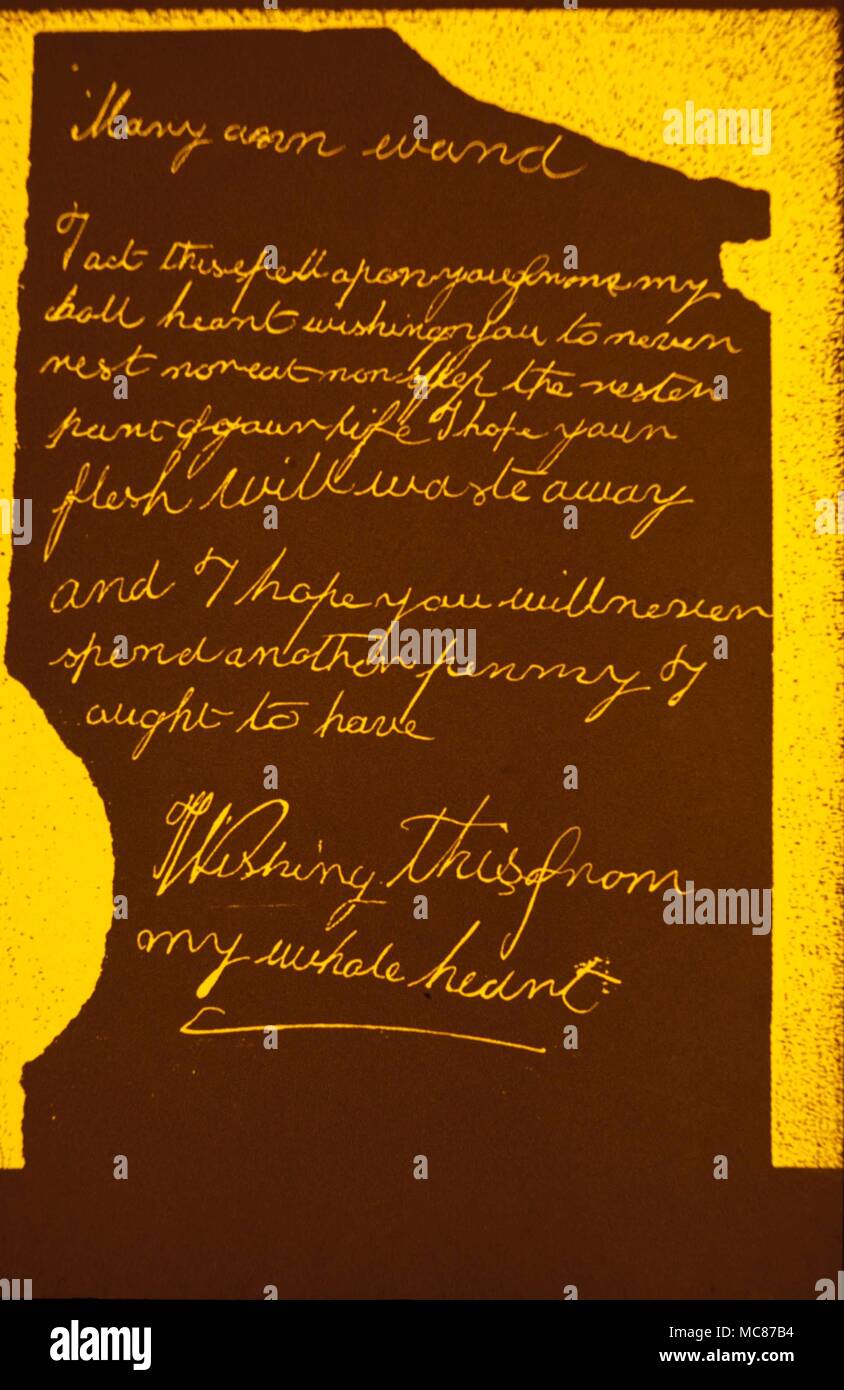 Mary ann ward
I act this spell upon you from my
hall heart wishing you to never
rest nor eat nor sleep the rester
part of your life I hope your
flesh will waste away
and I hope you will never
spend another penny I
aught to have
Wishing this from
my whole heart
alamy
Image ID: MC87B4
www.alamy.com